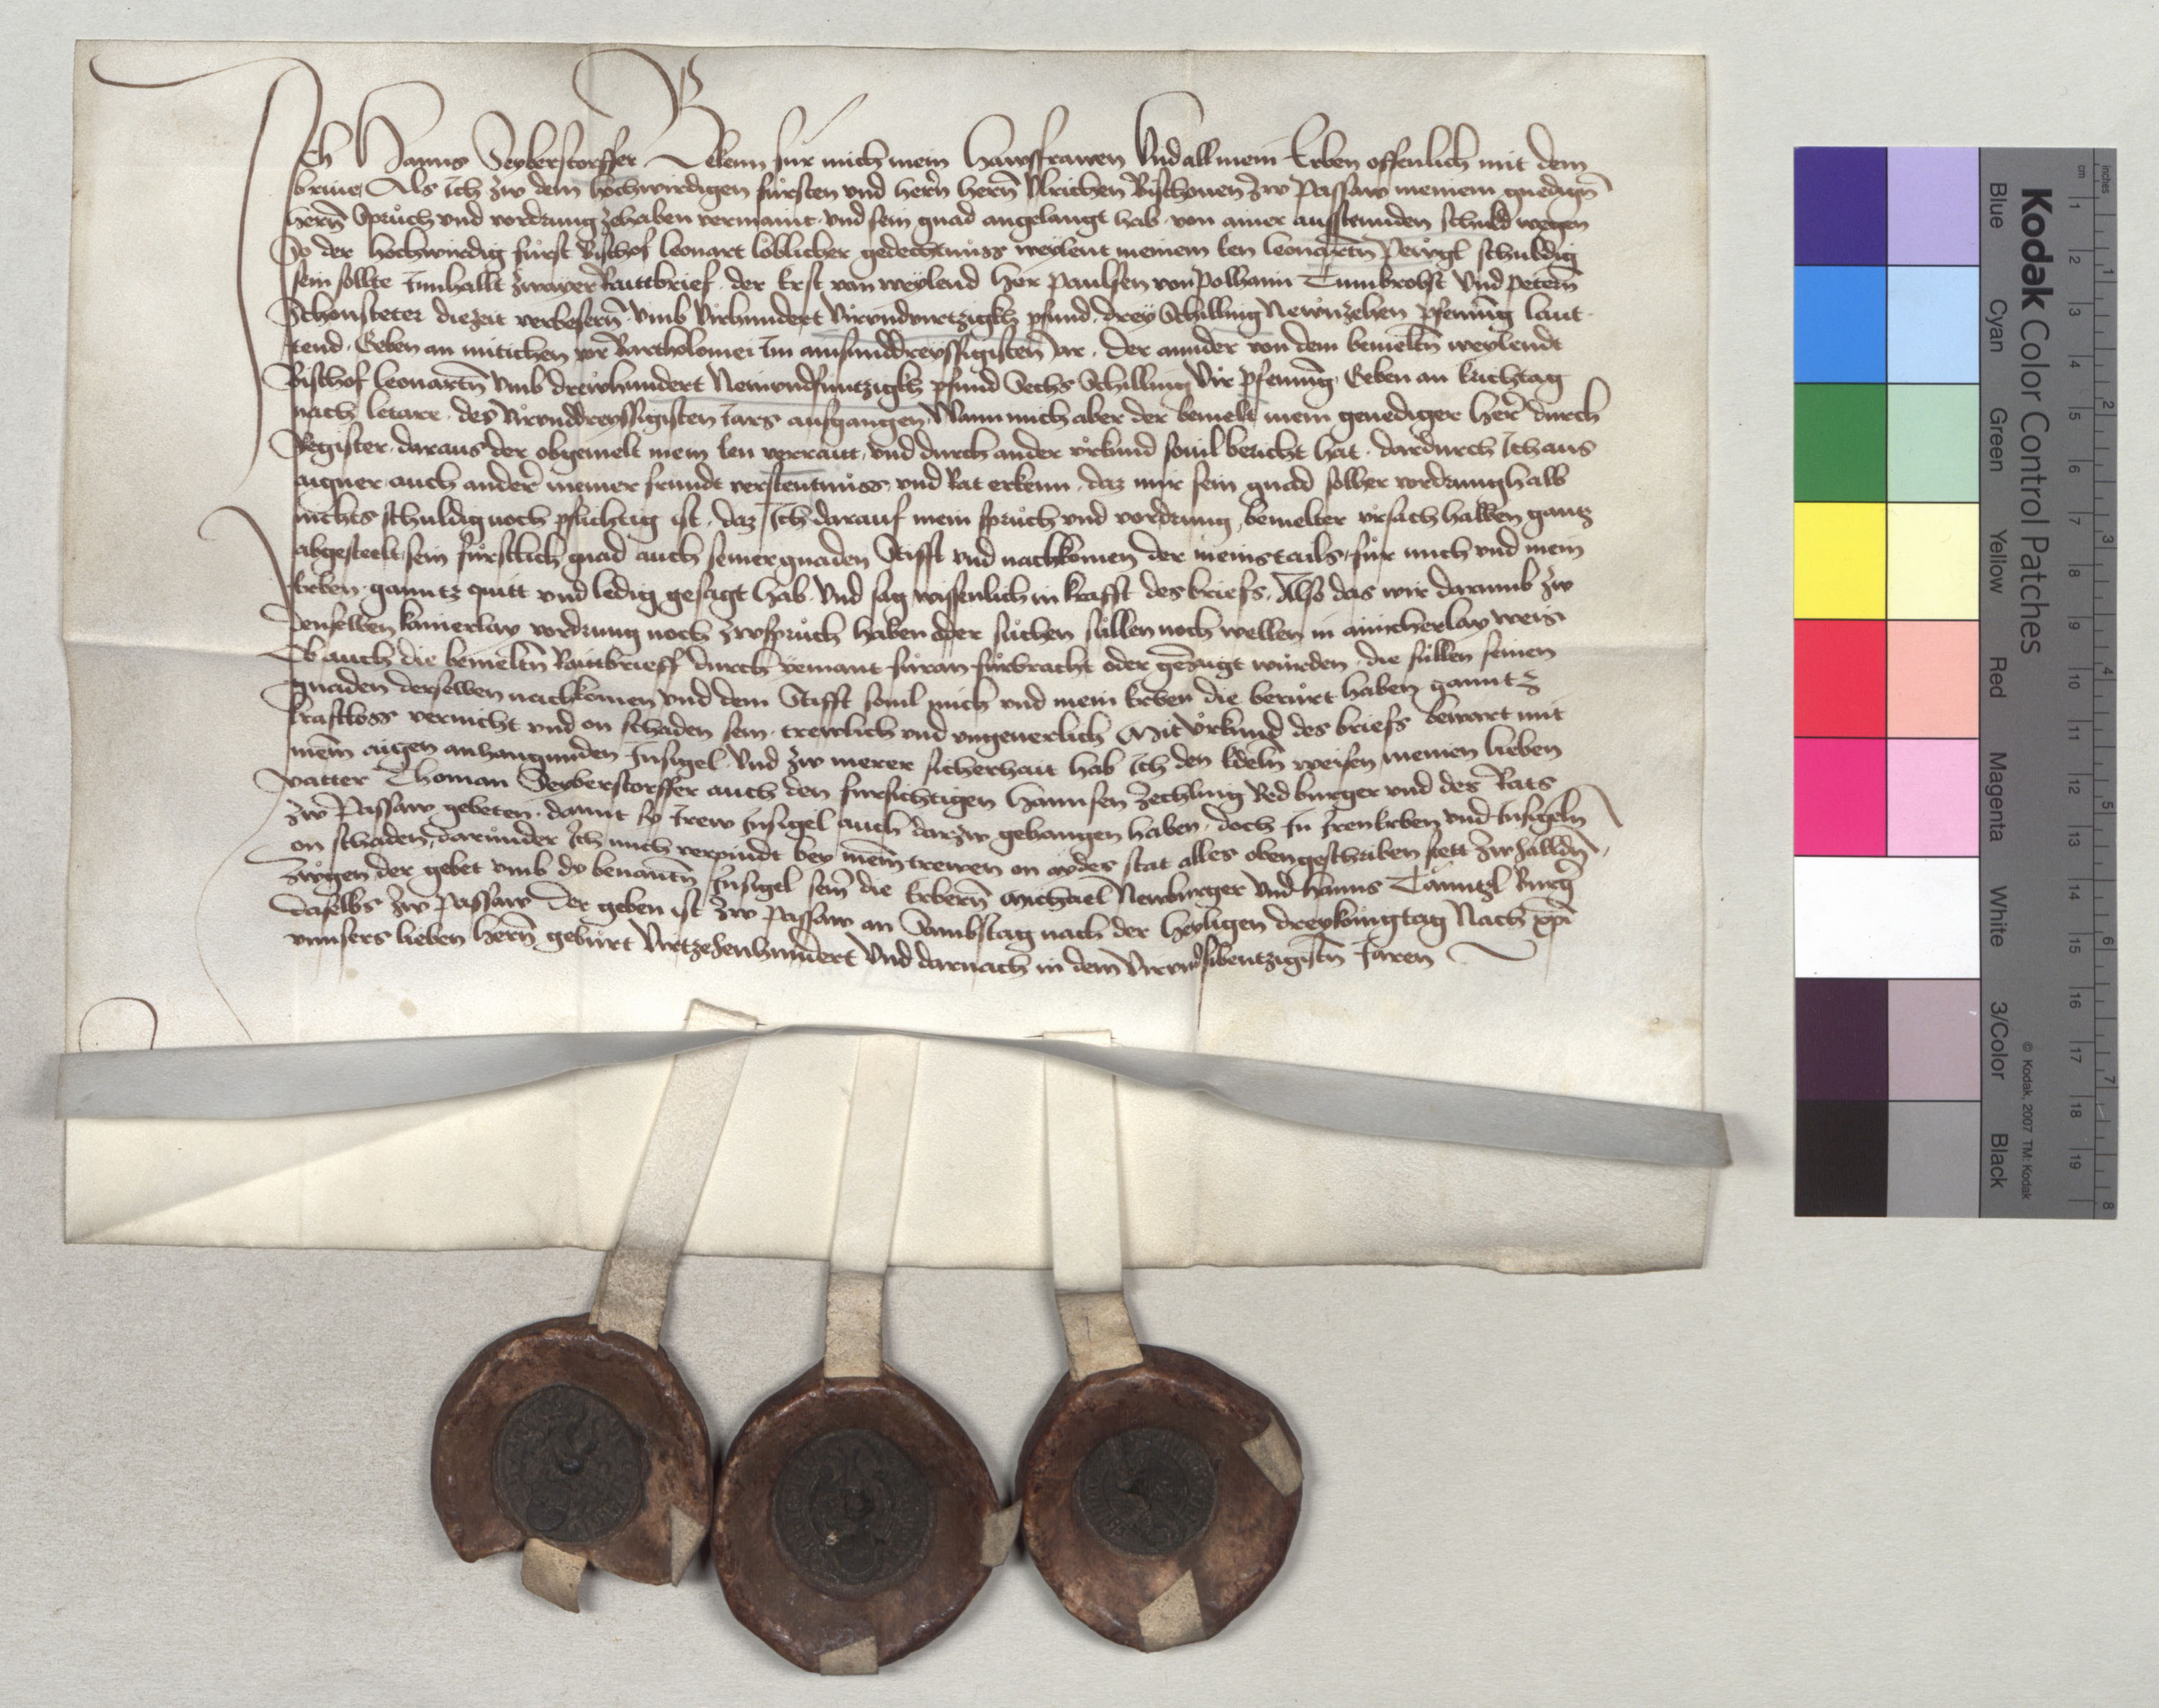 Ich Hanns Seyberstorffer Bekenn fur mich mein Hawsfrawen Und all mein Erben offenlich mit dem
brieue Als ich zw dem hochwirdigen fürsten und hern hern Ulrichen Bischouen zw Passaw meinem gnedign
hern Spruch und vordrung zehaben vermaint und sein gnad angelangt hab von ainer ausstennden schuld wegen
So der hochwirdig fürst Bischof leonart löblicher gedechtnuss weylent meinem len leonartn Perugl schuldig
sein sollte Innhallt zwayer Raittbrief der Erst von weylend Her Paulsen von Polhaim Tumbrobst Und petern
Schonsteter diezeit verbesern umb Virhundert Virundvirtzigkh pfund drey Schilling Newnzehen pfenning laut
tend Geben an mitichen vor Bartholomei Im ainsunddreyssigisten Jar der annder von dem bemeltn weylendt
Bischof leonartn Umb drewhundert Newnundfunftzigkh pfund Sechs Schilling Vir pfenning Geben an Erichtag
nach letare des Virunddreyssigisten Jars ausgangen Wann mich aber der bemelt mein genediger Her durch
Register daraus der obgemelt mein len verraitt und durch ander urkund souil bericht hat dardurch Ich aus
aigner auch ander meiner frundt verstentnuss und Rat erkenn daz mir sein gnad solher vordrung halb
nichts schuldig noch pflichtig ist daz Ich darauf mein spruch und vordrung bemelter ursach halben gantz
abgestellt sein fürstlich gnad auch seiner gnaden Stifft und nachkomen der meinstails für mich und mein
Erben ganntz quitt und ledig gesagt hab Und sag wissenlich in krafft des briefs Also das wir darumb zw
denselben kainerlay vordrung noch zwspruch haben oder suchen sullen noch wellen in ainicherlay weis
Ob auch die bemeltn Raitbrieff durch yemant füran fürbracht oder gezaigt wurden die sullen seinen
gnaden derselben nachkomen und dem Stifft souil mich und mein Erben die berürt haben ganntz
krafftloss vernicht und on schaden sein trewlich und ungeuerlich Mit urkund des briefs bewart mit
meim aigen anhangunden Insigel Und zw merer sicherhait hab Ich den Edeln weisen meinen lieben
vatter Thoman Seyberstorffer auch den fursichtigen Hannsen Zechling Bed burger und des Rats
zw Passaw gebeten damit sy Irew Insigel auch darzw gehangen haben doch In Iren Erben und Insigeln
on schaden darunder Ich mich verpindt bey meim trewen on aydes stat alles obengeschriben stett zw halldn
Zwgen der gebet umb dy benantn Insigel sein die Erbern Michael Newburger Und Hanns Tanntzl Burger
daselbs zw Passaw Der geben ist zw Passaw an Sambstag nach der Heyligen dreykönigtag Nach xpi
unnsers lieben hern geburt Virtzehenhundert Und darnach in dem Virundsibentzigistn Jaren
Kodak Color Control Patches
Blue Cyan Green Yellow Red Magenta White 3/Color Black
© Kodak, 2007 TM: Kodak
cm 1 2 3 4 5 6 7 8 9 10 11 12 13 14 15 16 17 18 19
inches 1 2 3 4 5 6 7 8